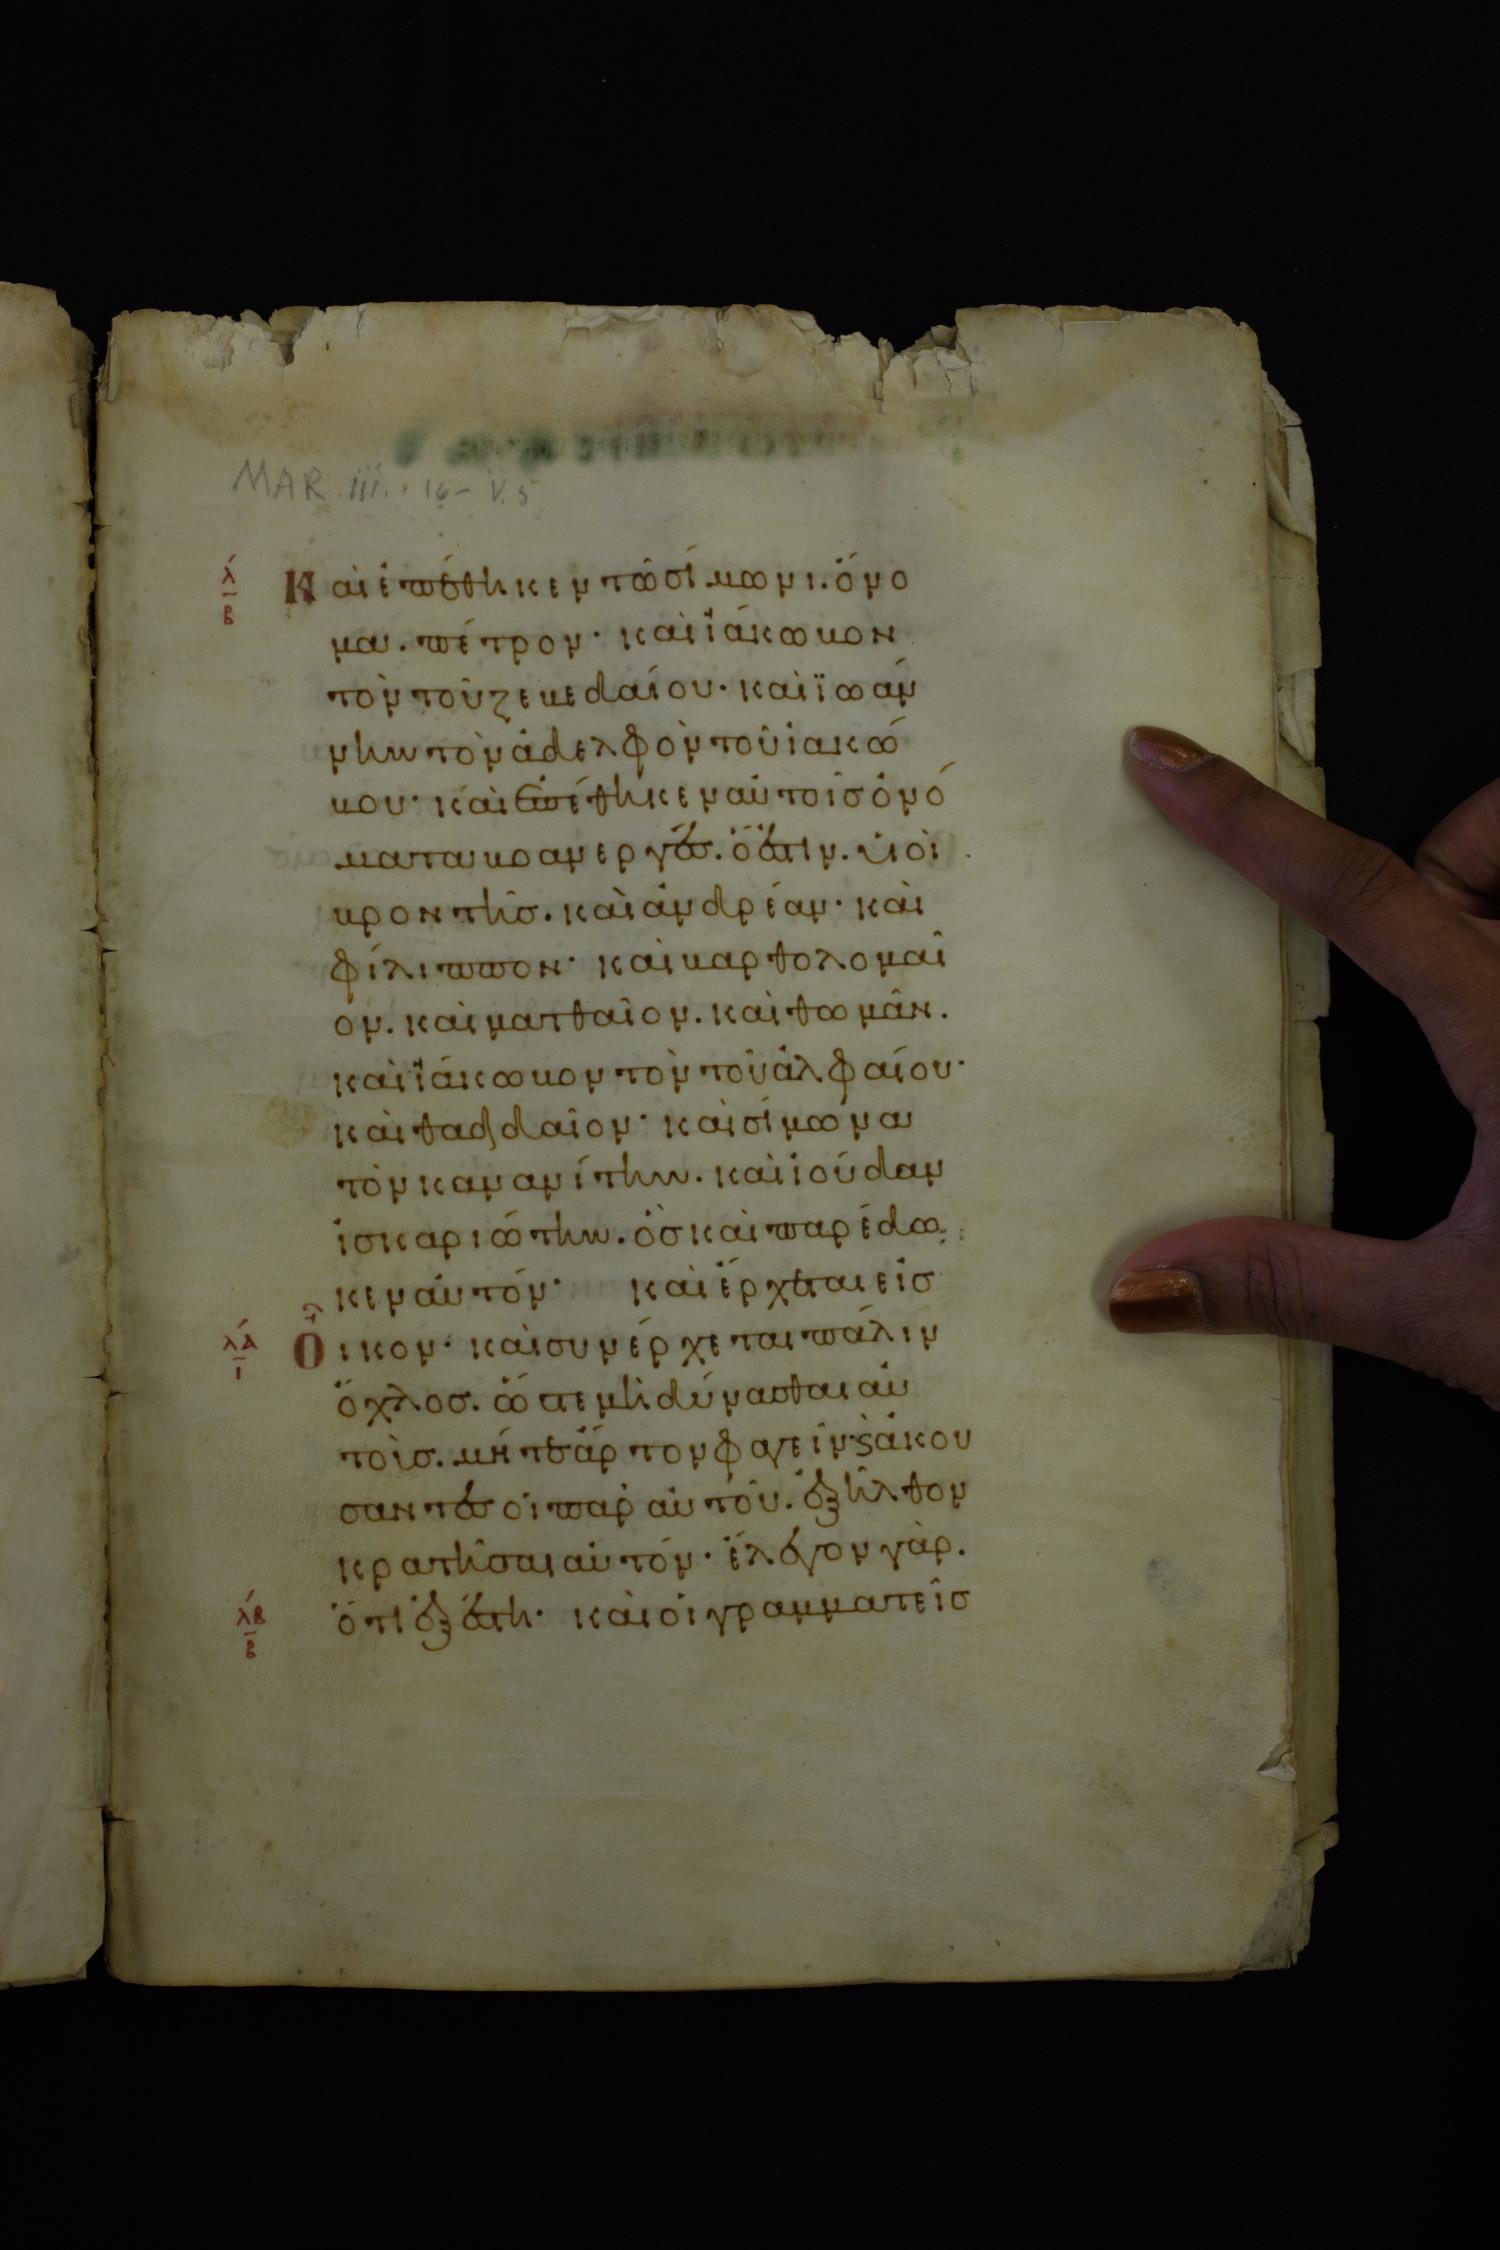 MAR. iii. 16 - V. 5
λ
β
Καὶ ἐπέθηκεν τῶ σίμωνι. ὄνο
μα. πέτρον· καὶ ἰάκωβον
τὸν τοῦ ζεβεδαίου· καὶ ϊωάν
νην τὸν ἀδελφὸν τοῦ ἰακώ
βου· καὶ ἐπέθηκεν αὐτοῖσ ὀνό
ματα βοανεργέσ. ὅ ἐστιν. υἱοὶ
βροντῆσ. καὶ ἀνδρέαν· καὶ
φίλιππον· καὶ βαρθολομαῖ
ον. καὶ ματθαῖον. καὶ θωμᾶν.
καὶ ἰάκωβον τὸν τοῦ ἀλφαίου·
καὶ θαδδαῖον· καὶ σίμωνα
τὸν κανανίτην. καὶ ἰούδαν
ἰσκαριώτην. ὃσ καὶ παρέδω
κεν αὐτόν· καὶ ἔρχεται εἰσ
λα
ι
Οἶκον· καὶ συνέρχεται πάλιν
ὄχλοσ. ὥστε μὴ δύνασθαι αὐ
τοὺσ. μήτε ἄρτον φαγεῖν· ϗ ἀκού
σαντεσ οἱ παρ αὐτοῦ. ἐξῆλθον
κρατῆσαι αὐτόν· ἔλεγον γὰρ.
λβ
β
ὅτι ἐξέστη· καὶ οἱ γραμματεῖσ